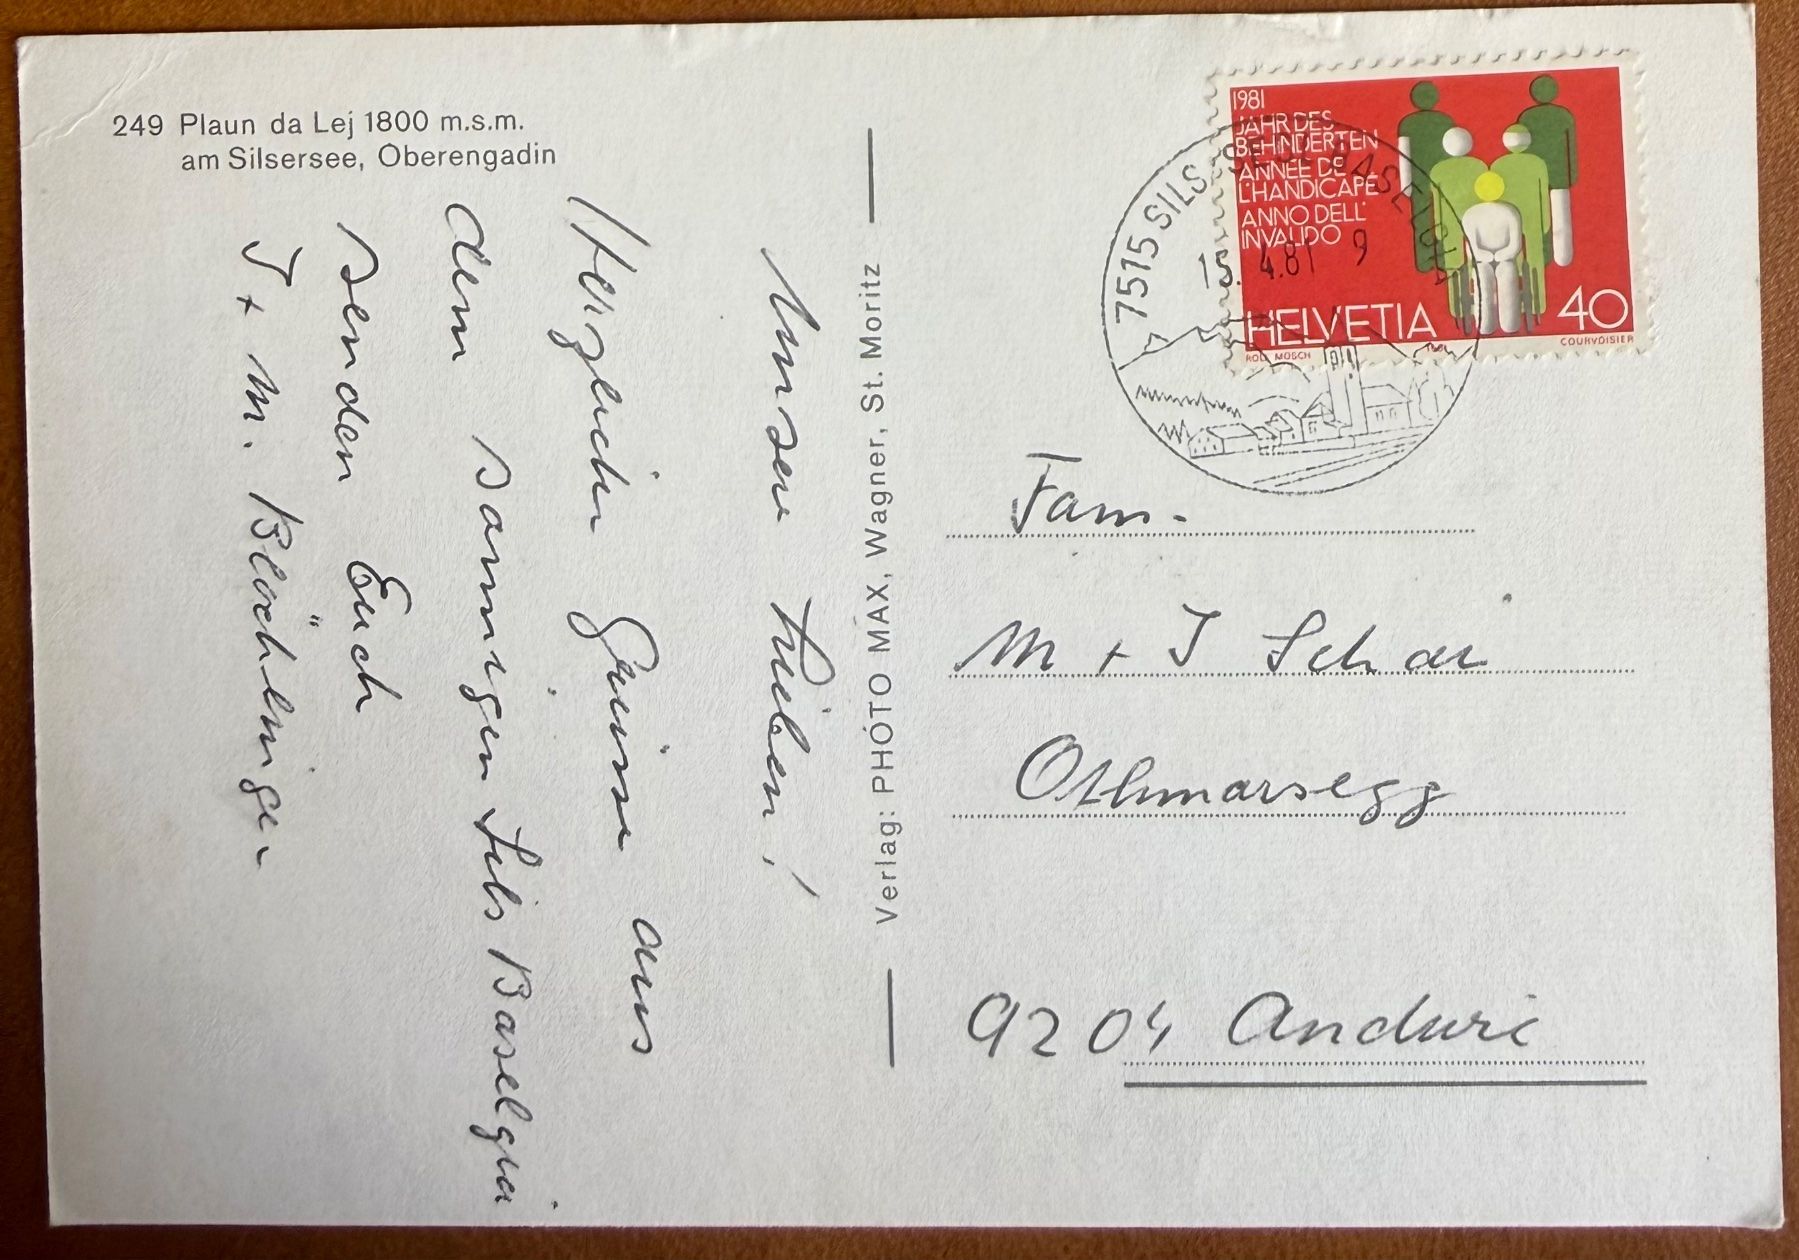 249 Plaun da Lej 1800 m.s.m.
am Silsersee, Oberengadin
Unsere Lieben!
Herzliche Grüsse aus
dem sonnigen Sils Baselgia
senden Euch
J + M. Blöchlinger
Verlag: PHOTO MAX, Wagner, St. Moritz
1981
JAHR DES
BEHINDERTEN
ANNÉE DE
L'HANDICAPÉ
ANNO DELL'
INVALIDO
HELVETIA 40
ROLF MÖSCH 1981 COURVOISIER
7515 SILS-SEGL BASELGIA
4.81 9
Fam.
M + J Schär
Othmarsegg
9204 Andwil